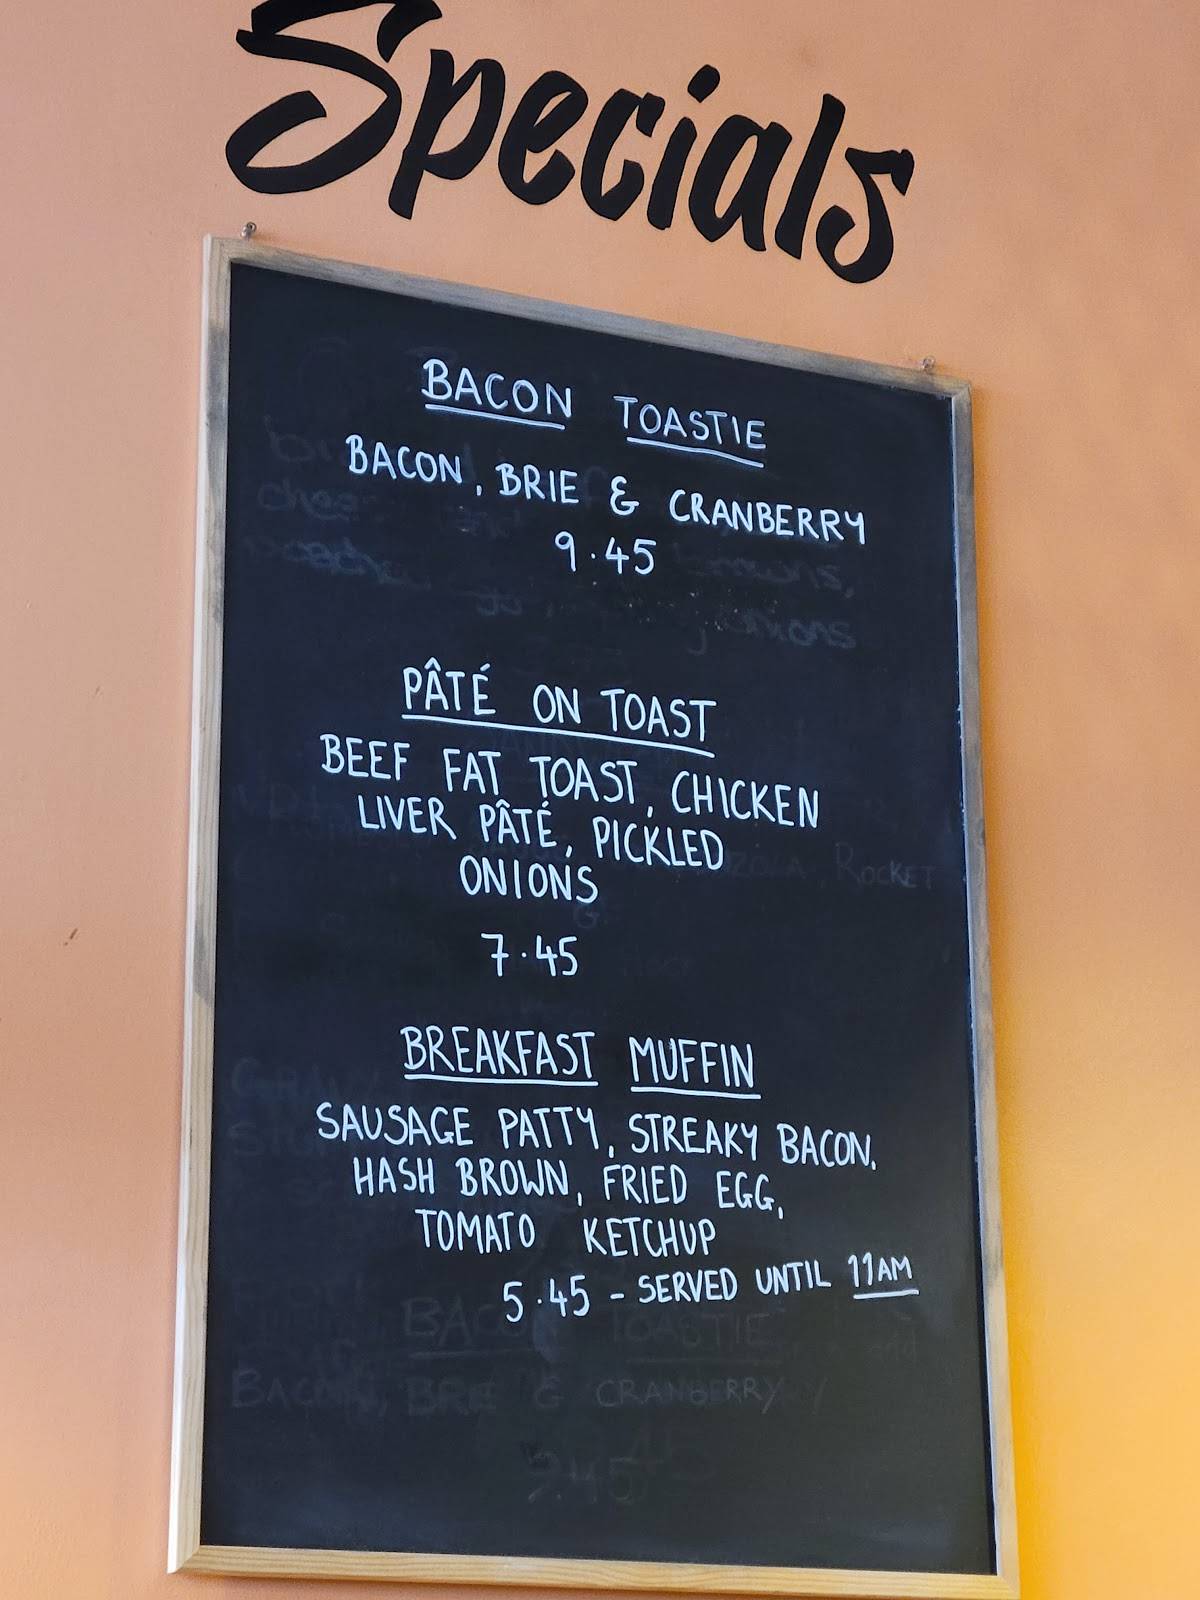 Specials
BACON TOASTIE
BACON, BRIE & CRANBERRY
9.45
PÂTÉ ON TOAST
BEEF FAT TOAST, CHICKEN
LIVER PÂTÉ, PICKLED
ONIONS
7.45
BREAKFAST MUFFIN
SAUSAGE PATTY, STREAKY BACON,
HASH BROWN, FRIED EGG,
TOMATO KETCHUP
5.45 - SERVED UNTIL 11AM
BACON TOASTIE
BACON, BRIE & CRANBERRY